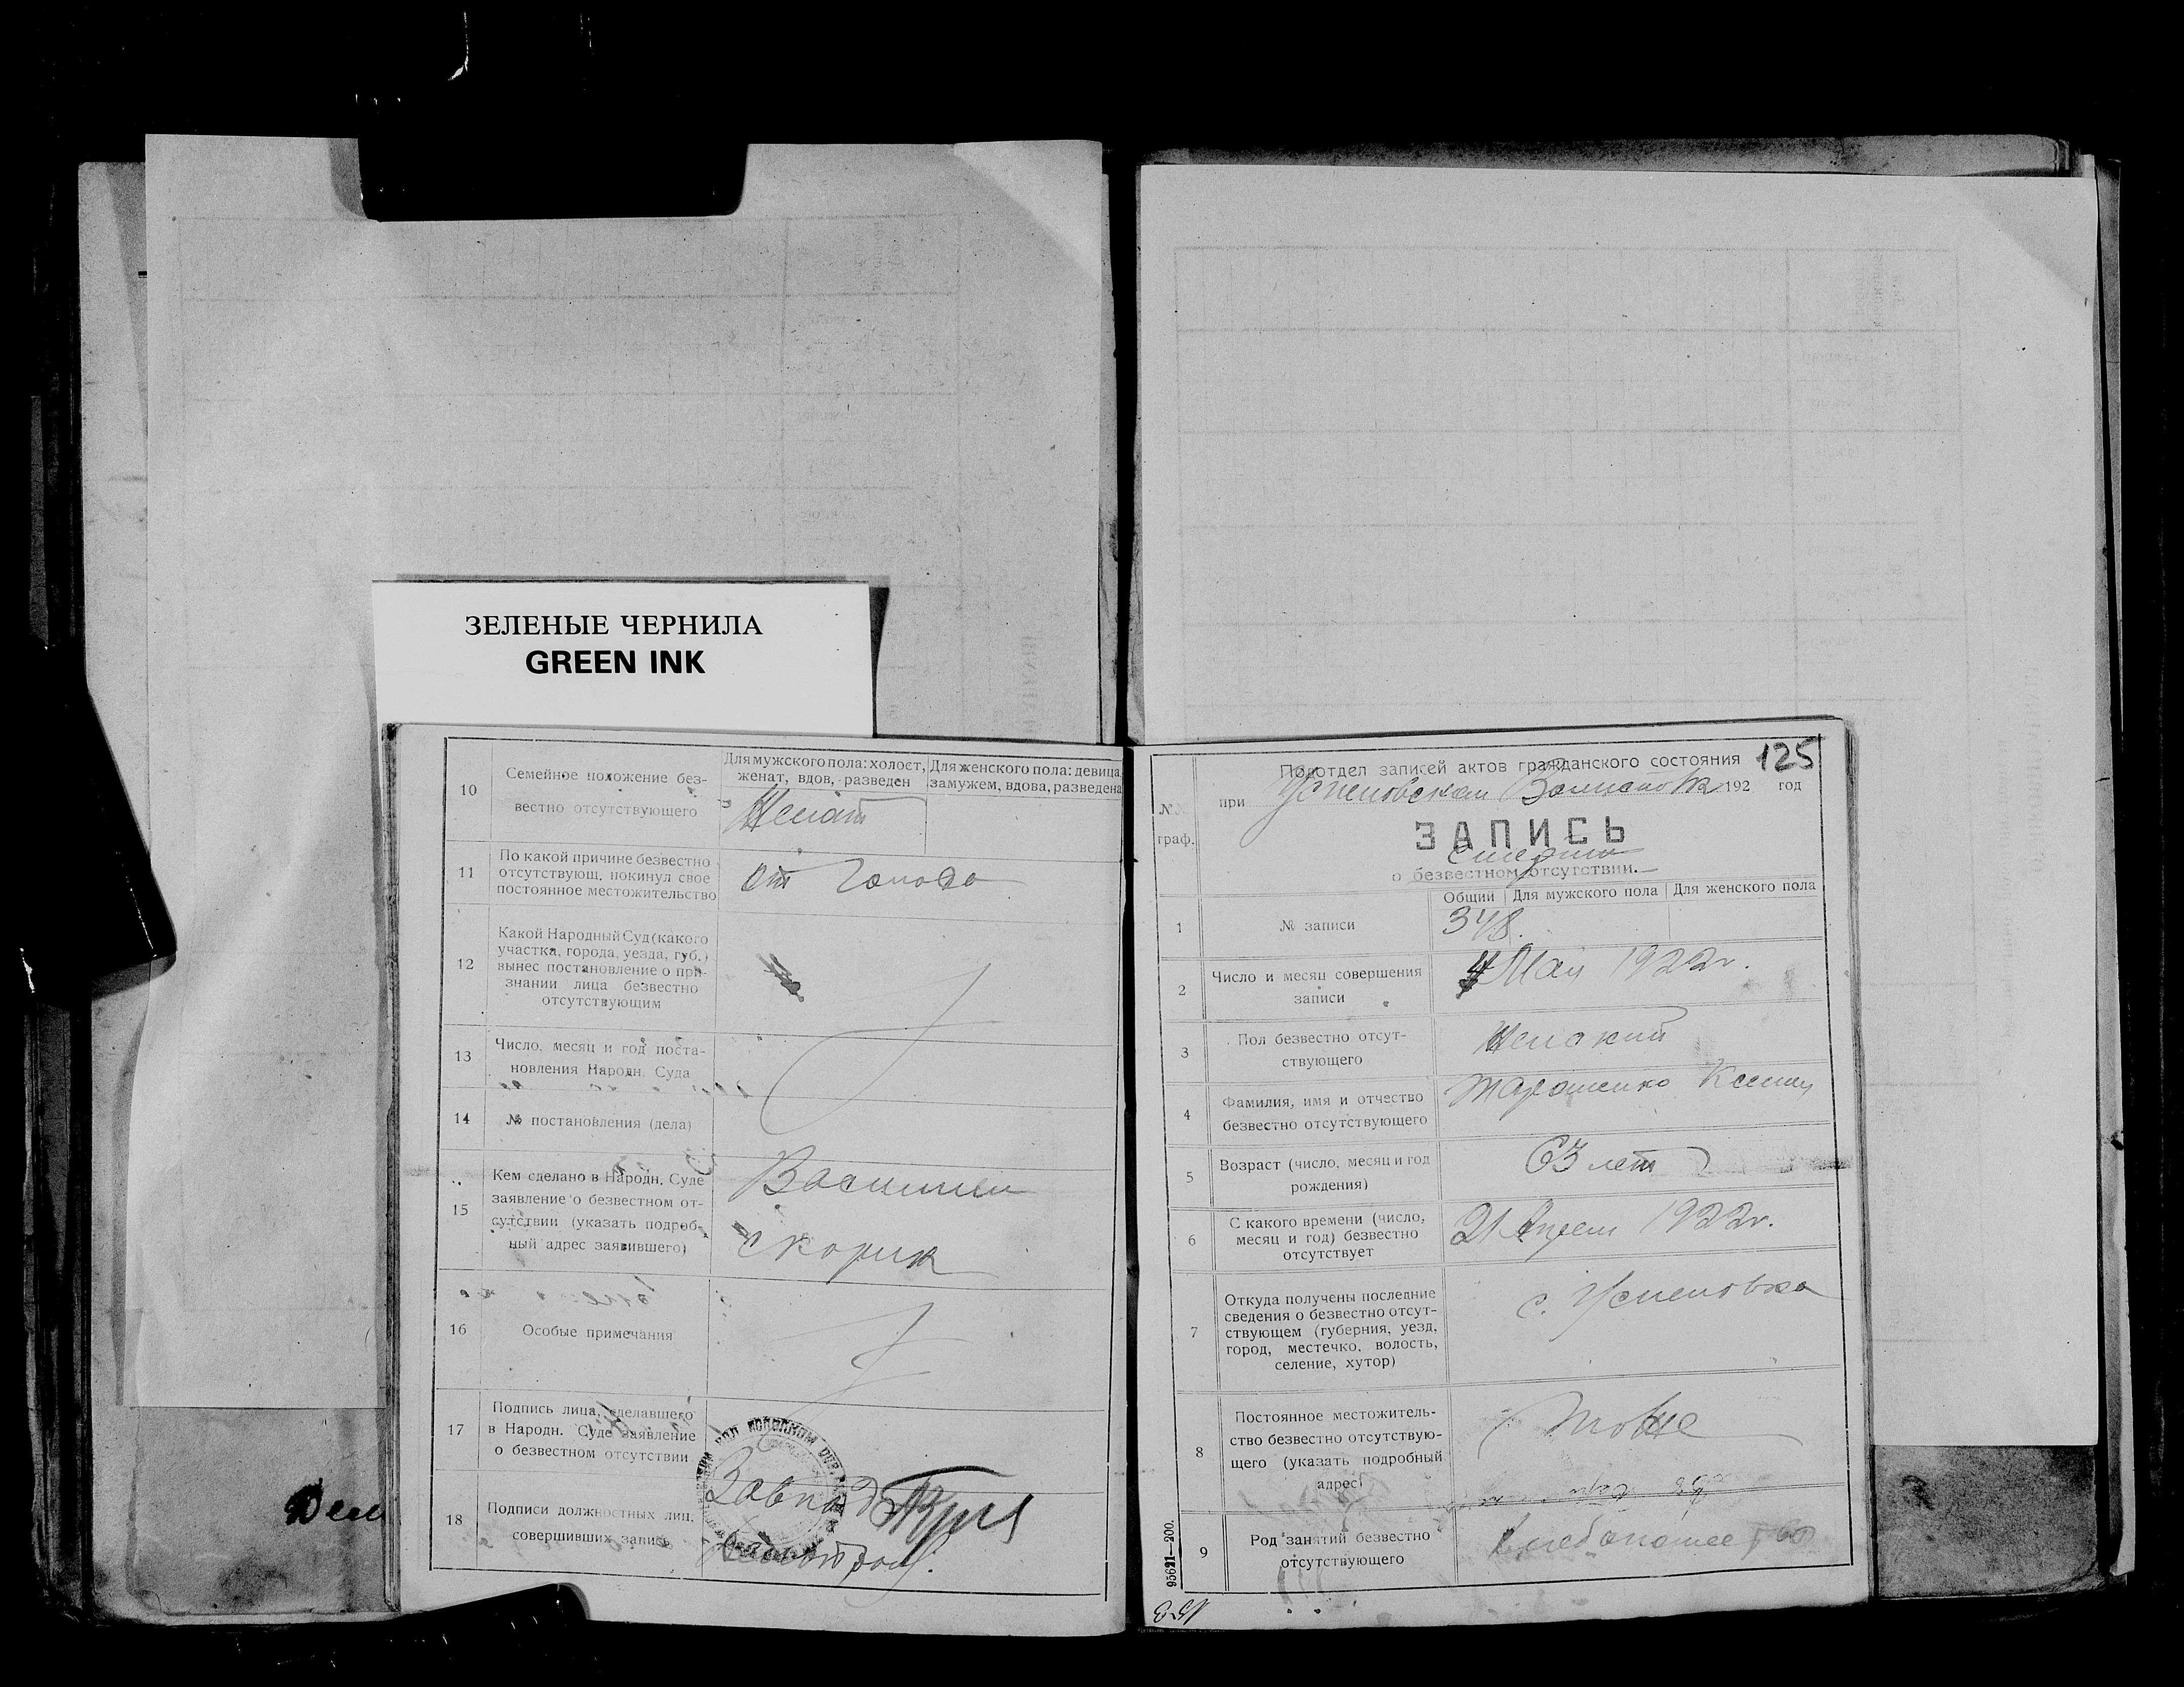 ЗЕЛЕНЫЕ ЧЕРНИЛА
GREEN INK
10
Семейное положение без-
вестно отсутствующего
Для мужского пола: холост,
женат, вдов, разведен
Для женского пола: девица,
замужем, вдова, разведена
Женат
11
По какой причине безвестно
отсутствующ. покинул свое
постоянное местожительство
от голода
12
Какой Народный Суд (какого
участка, города, уезда, губ.)
вынес постановление о при-
знании лица безвестно
отсутствующим
13
Число, месяц и год поста-
новления Народн. Суда
14
№ постановления (дела)
15
Кем сделано в Народн. Суде
заявление о безвестном от-
сутствии (указать подроб-
ный адрес заявившего)
Василий
Скорик
16
Особые примечания
17
Подпись лица, сделавшего
в Народн. Суде заявление
о безвестном отсутствии
18
Подписи должностных лиц,
совершивших запись
125
Подотдел записей актов гражданского состояния
при Успеновском 192 год
№№
граф.
ЗАПИСЬ
смерти
о безвестном отсутствии.
Общий
Для мужского пола
Для женского пола
1
№ записи
348.
2
Число и месяц совершения
записи
4 Мая 1922г.
3
Пол безвестно отсут-
ствующего
Женский
4
Фамилия, имя и отчество
безвестно отсутствующего
Тарошенко Ксения
5
Возраст (число, месяц и год
рождения)
63 лет
6
С какого времени (число,
месяц и год) безвестно
отсутствует
21 Апреля 1922г.
7
Откуда получены последние
сведения о безвестно отсут-
ствующем (губерния, уезд,
город, местечко, волость,
селение, хутор)
с. Успеновка
8
Постоянное местожитель-
ство безвестно отсутствую-
щего (указать подробный
адрес)
Тоже
9
Род занятий безвестно
отсутствующего
Хлебопашество
95621—200.